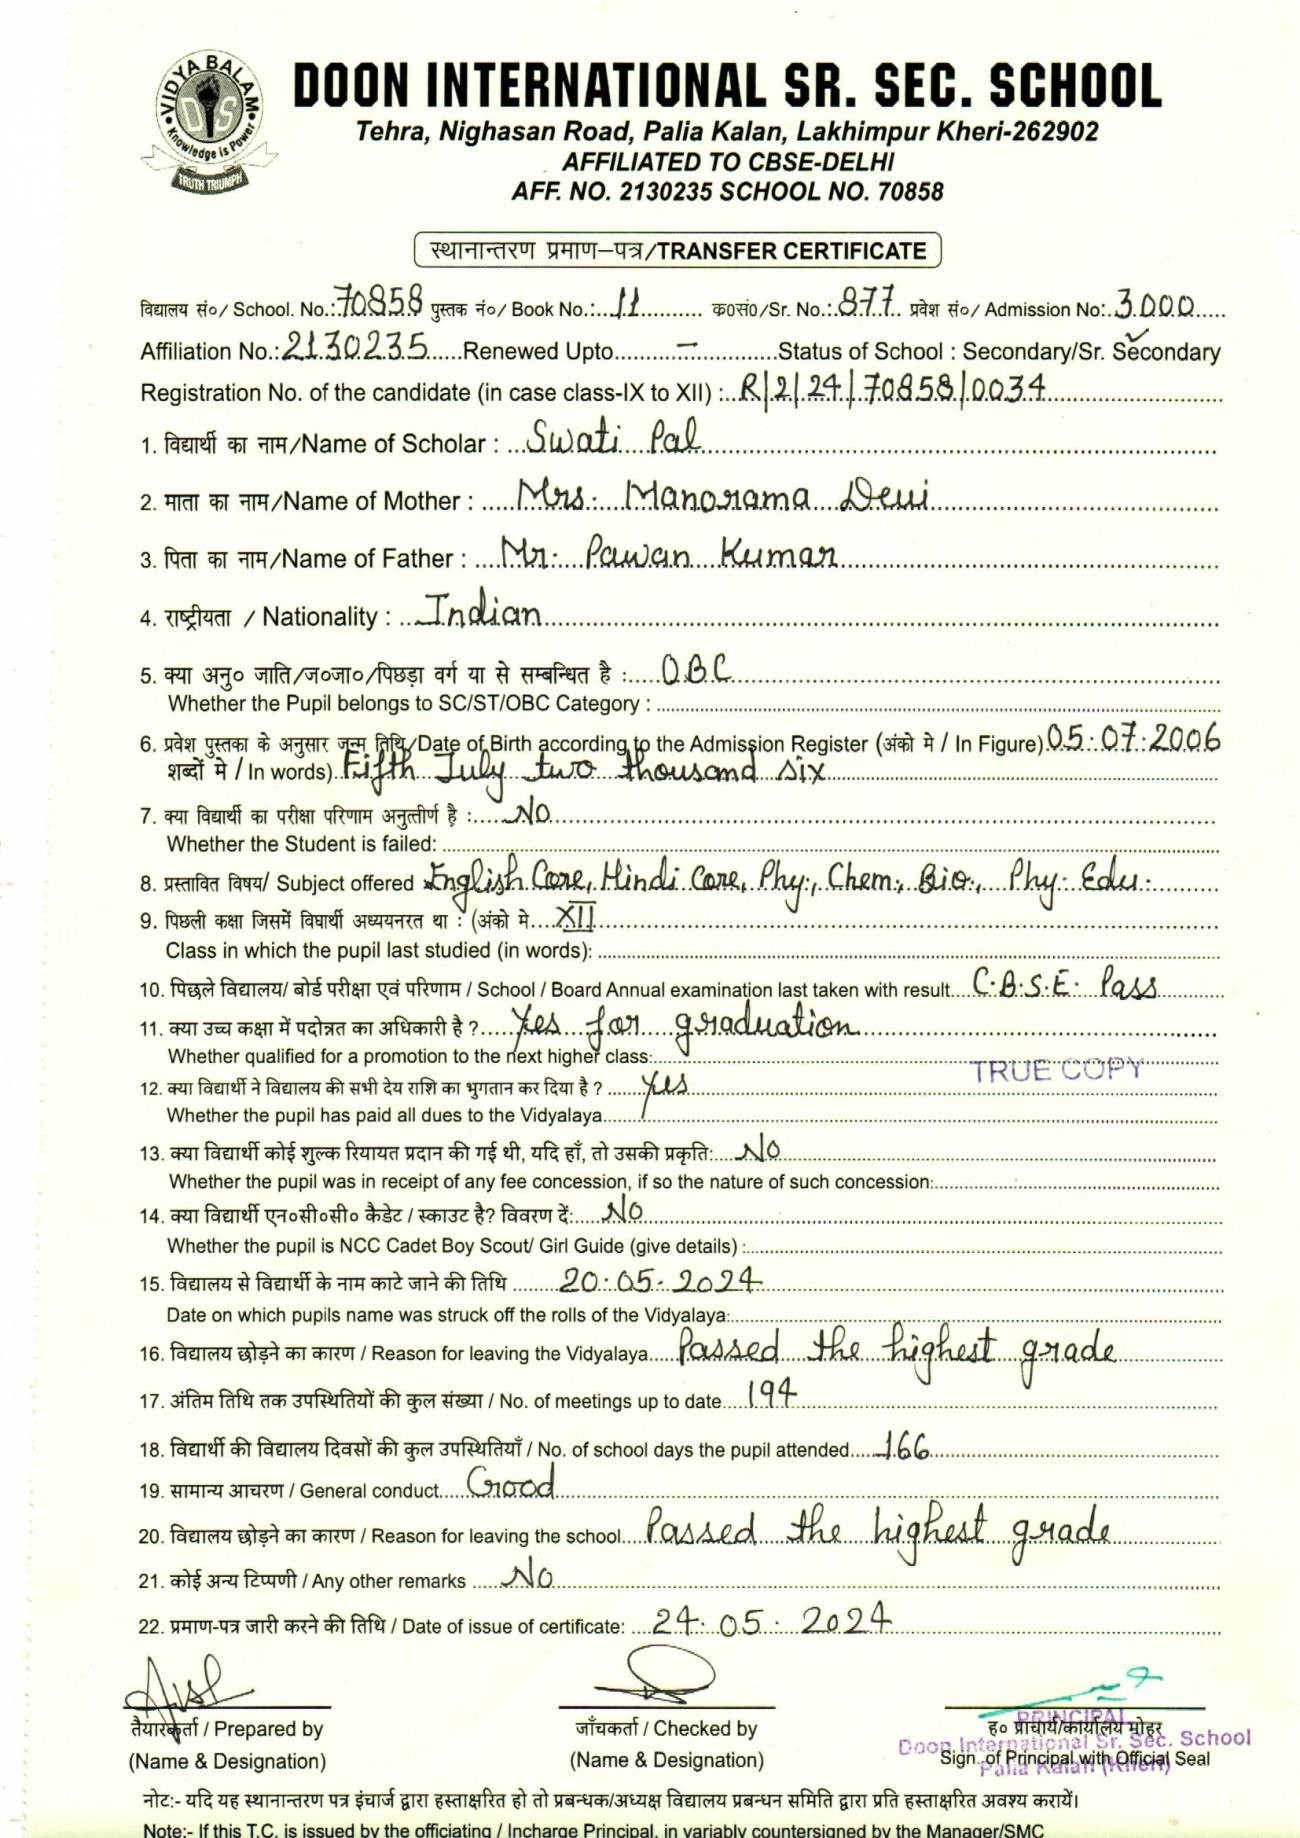 VIDYA BALAM
DIS
Knowledge is Power
TRUTH TRIUMPH
DOON INTERNATIONAL SR. SEC. SCHOOL
Tehra, Nighasan Road, Palia Kalan, Lakhimpur Kheri-262902
AFFILIATED TO CBSE-DELHI
AFF. NO. 2130235 SCHOOL NO. 70858
स्थानान्तरण प्रमाण–पत्र/TRANSFER CERTIFICATE
विद्यालय सं०/ School. No.: 70858 पुस्तक नं०/ Book No.: 11 क0सं0/Sr. No.: 877 प्रवेश सं०/ Admission No: 3000
Affiliation No.: 2130235 Renewed Upto – Status of School : Secondary/Sr. Secondary
Registration No. of the candidate (in case class-IX to XII) : R|2|24|70858|0034
1. विद्यार्थी का नाम/Name of Scholar : Swati Pal
2. माता का नाम/Name of Mother : Mrs. Manorama Devi
3. पिता का नाम/Name of Father : Mr. Pawan Kumar
4. राष्ट्रीयता / Nationality : Indian
5. क्या अनु० जाति/ज०जा०/पिछड़ा वर्ग या से सम्बन्धित है : OBC
Whether the Pupil belongs to SC/ST/OBC Category :
6. प्रवेश पुस्तका के अनुसार जन्म तिथि/Date of Birth according to the Admission Register (अंको मे / In Figure) 05.07.2006
शब्दों मे / In words) Fifth July two thousand six
7. क्या विद्यार्थी का परीक्षा परिणाम अनुत्तीर्ण है : No
Whether the Student is failed:
8. प्रस्तावित विषय/ Subject offered : English Core, Hindi Core, Phy., Chem., Bio., Phy. Edu.
9. पिछली कक्षा जिसमें विघार्थी अध्ययनरत था : (अंको मे XII
Class in which the pupil last studied (in words):
10. पिछले विद्यालय/ बोर्ड परीक्षा एवं परिणाम / School / Board Annual examination last taken with result C.B.S.E. Pass
11. क्या उच्च कक्षा में पदोन्नत का अधिकारी है ? Yes for graduation
Whether qualified for a promotion to the next higher class:
TRUE COPY
12. क्या विद्यार्थी ने विद्यालय की सभी देय राशि का भुगतान कर दिया है ? Yes
Whether the pupil has paid all dues to the Vidyalaya
13. क्या विद्यार्थी कोई शुल्क रियायत प्रदान की गई थी, यदि हाँ, तो उसकी प्रकृति: No
Whether the pupil was in receipt of any fee concession, if so the nature of such concession:
14. क्या विद्यार्थी एन०सी०सी० कैडेट / स्काउट है? विवरण दें: No
Whether the pupil is NCC Cadet Boy Scout/ Girl Guide (give details) :
15. विद्यालय से विद्यार्थी के नाम काटे जाने की तिथि 20.05.2024
Date on which pupils name was struck off the rolls of the Vidyalaya:
16. विद्यालय छोड़ने का कारण / Reason for leaving the Vidyalaya Passed the highest grade
17. अंतिम तिथि तक उपस्थितियों की कुल संख्या / No. of meetings up to date 194
18. विद्यार्थी की विद्यालय दिवसों की कुल उपस्थितियाँ / No. of school days the pupil attended 166
19. सामान्य आचरण / General conduct Good
20. विद्यालय छोड़ने का कारण / Reason for leaving the school Passed the highest grade
21. कोई अन्य टिप्पणी / Any other remarks No
22. प्रमाण-पत्र जारी करने की तिथि / Date of issue of certificate: 24.05.2024
तैयारकर्ता / Prepared by जाँचकर्ता / Checked by ह० प्राचार्य/कार्यालय मोहर
PRINCIPAL
Doon International Sr. Sec. School
(Name & Designation) (Name & Designation) Sign. of Principal with Official Seal
Palia Kalan (Kheri)
नोटः- यदि यह स्थानान्तरण पत्र इंचार्ज द्वारा हस्ताक्षरित हो तो प्रबन्धक/अध्यक्ष विद्यालय प्रबन्धन समिति द्वारा प्रति हस्ताक्षरित अवश्य करायें।
Note:- If this T.C. is issued by the officiating / Incharge Principal, in variably countersigned by the Manager/SMC